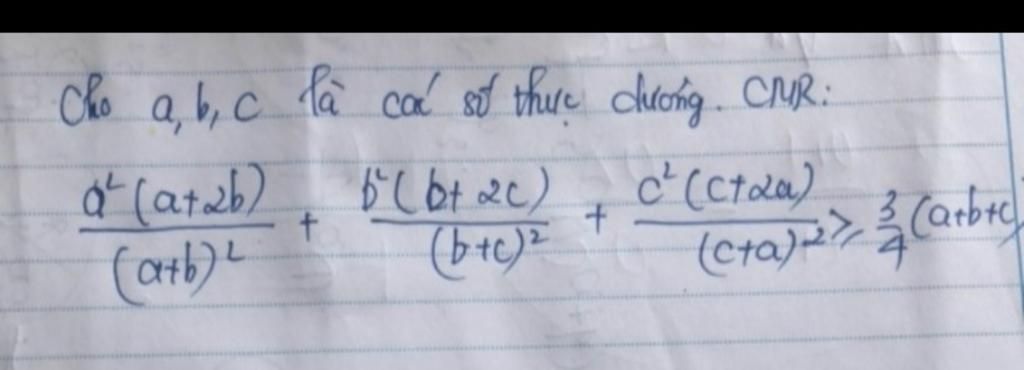 Cho a, b, c là các số thực dương. CMR:
a²(a+2b)/(a+b)² + b²(b+2c)/(b+c)² + c²(c+2a)/(c+a)² ≥ 3/4 (a+b+c)